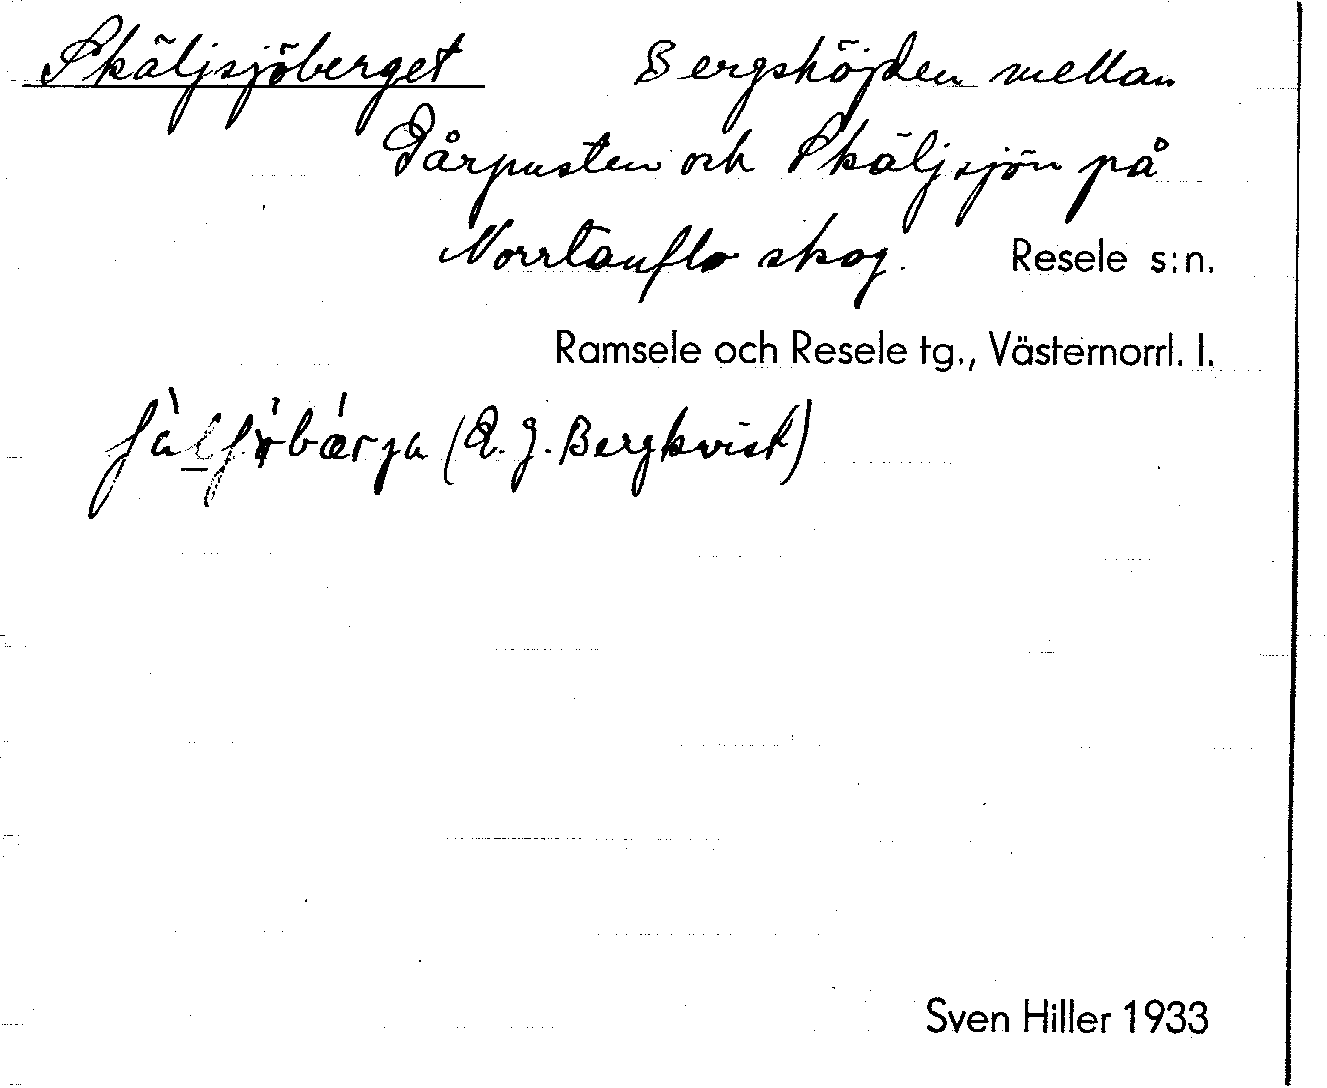 Skäljsjöberget Bergshöjden mellan
Dårpusten och Skäljsjön på
Norrtanflo skog. Resele s:n.
Ramsele och Resele tg., Västernorrl. l.
(E. J. Bergkvist)
Sven Hiller 1933